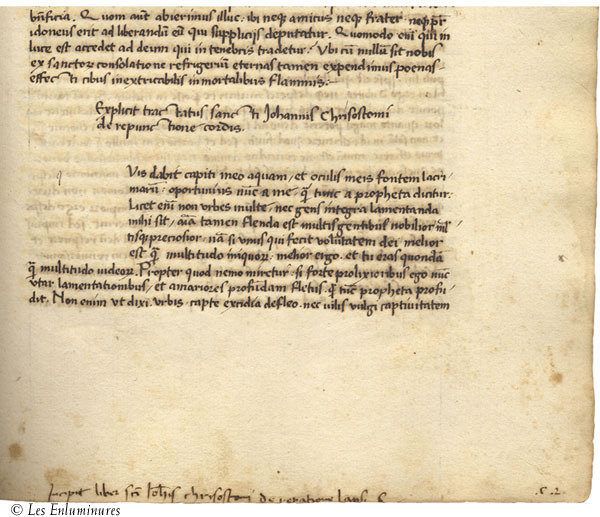 bn̄ficia. Quom aūt abierimus illuc. ibi neqʒ amicus neqʒ frater neqʒ pr̄
idoneus erit ad liberandū eū qui supplicijs deputatur. Quomodo eni᷑ qui in
luce est accedet ad deum qui in tenebris tradetur. Vbi cū nullū sit nobis
ex sanctorꝫ consolatione refrigeriū eternas tamen expendimus poenas
effecti cibus inextricabilis inmortalibus flammis.
Explicit tractatus sancti Johannis Chrisostomi
de repunctione cordis.
Vis dabit capiti meo aquam, et oculis meis fontem lacri
marū. oportunius nūc a me, q̄ tunc a propheta dicitur.
Licet eni᷑ non vrbes multe, nec gens integra lamentanda
mihi sit, aīa tamen flenda est multis gentibus nobilior ml̄
tisqʒ preciosior. nā si vnus qui fecit volūtatem dei melior
est q̄ multitudo iniquorꝫ. melior ergo et tu eras quondā
q̄ multitudo iudeorꝫ. Propter quod nemo miretur si forte prolixioribus ego nūc
vtar lamentationibus, et amariores profūdam fletus. q̄ tūc propheta profu
dit. Non enim vt dixi vrbis capte excidia defleo. nec vilis vulgi captiuitatem
Incipit liber scī Ioh̄is chrisostomi de reparatione lapsi
.c. 2.
© Les Enluminures